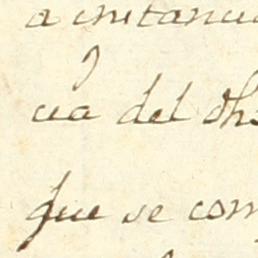 a instancia
cia del dho
que se com